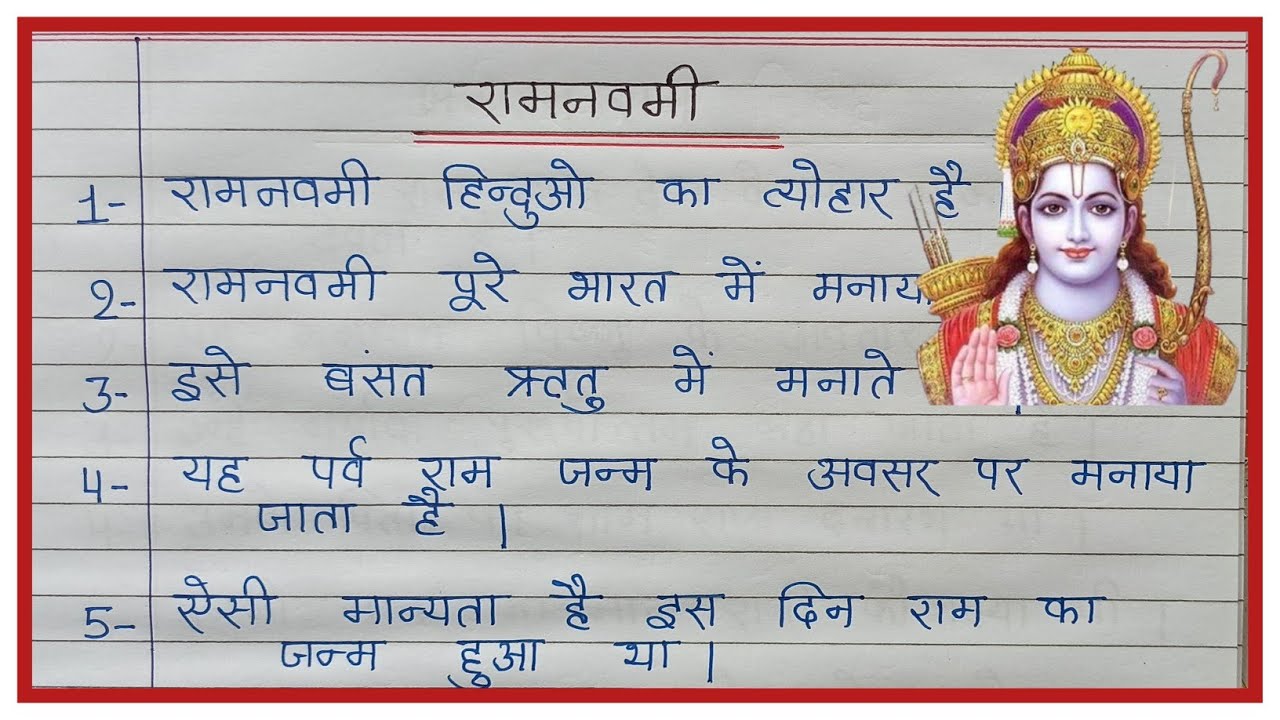 रामनवमी
1- रामनवमी हिन्दुओ का त्योहार है
2- रामनवमी पूरे भारत में मनाया
3- इसे बंसत ऋतु में मनाते
4- यह पर्व राम जन्म के अवसर पर मनाया
जाता है ।
5- ऐसी मान्यता है इस दिन राम का
जन्म हुआ था ।